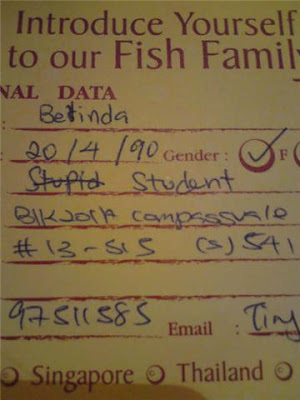 Introduce Yourself
to our Fish Family
NAL DATA
: Betinda
: 20/4/90 Gender : F
Stupid Student
Blk compassvale
#13-515 (S) 541
97511585 Email : Tiny
Singapore Thailand